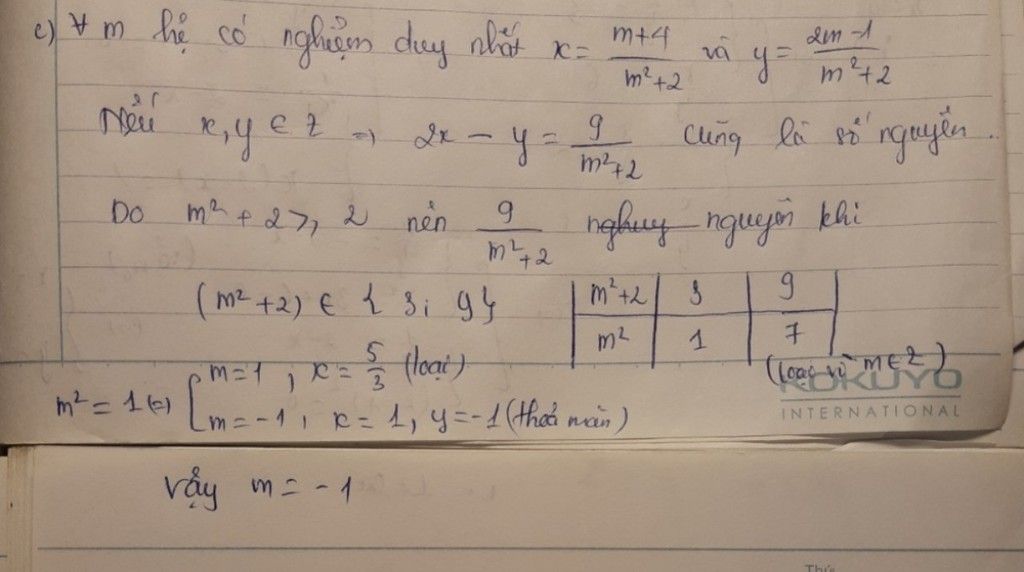 c) ∀ m hệ có nghiệm duy nhất x = (m+4)/(m²+2) và y = (2m-1)/(m²+2)
Nếu x, y ∈ Z ⇒ 2x - y = 9/(m²+2) cũng là số nguyên.
Do m² + 2 ≥ 2 nên 9/(m²+2) nghuy nguyên khi
(m² + 2) ∈ { 3; 9}
m²+2 | 3 | 9
m² | 1 | 7
(loại vì m ∈ Z)
m² = 1 ⇔ [ m = 1, x = 5/3 (loại)
m = -1, x = 1, y = -1 (thoả mãn)
KOKUYO
INTERNATIONAL
Vậy m = -1